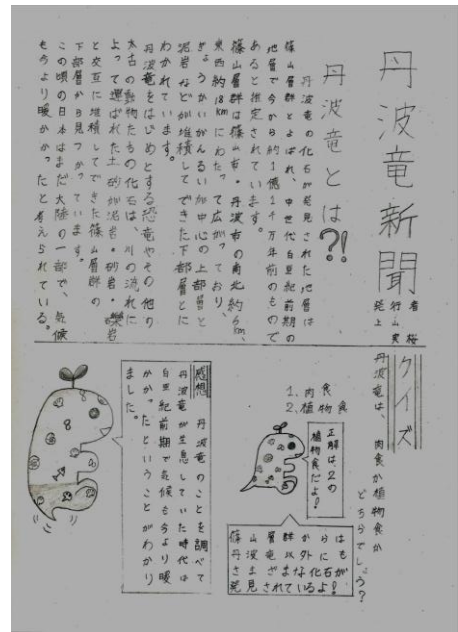 丹波竜新聞
発行者
上山実桜
丹波竜とは?!
丹波竜の化石が発見された地層は
篠山層群とよばれ、中世代白亜紀前期の
地層で今から約1億1千万年前のもので
あると推定されています。
篠山層群は篠山市・丹波市の南北約6km、
東西約18kmにわたって広がっており、
ぎょうかいがんるいが中心の上部層と
泥岩などが堆積してできた下部層とに
わかれています。
丹波竜をはじめとする恐竜やその他の
太古の動物たちの化石は、川の流れに
よって運ばれた土砂が泥岩・砂岩・礫岩
と交互に堆積してできた篠山層群の
下部層から見つかっています。
この頃の日本はまだ大陸の一部で、気候
も今より暖かかったと考えられている。
クイズ
丹波竜は、肉食か植物食か
どちらでしょう?
1、肉食
2、植物食
正解は、2の
植物食だよ!
篠山層群からは
丹波竜以外にも
さまざまな化石が
発見されているよ!
感想
丹波竜のことを調べて
丹波竜が生息していた時代は
白亜紀前期で気候も今より暖
かかったということがわかり
ました。